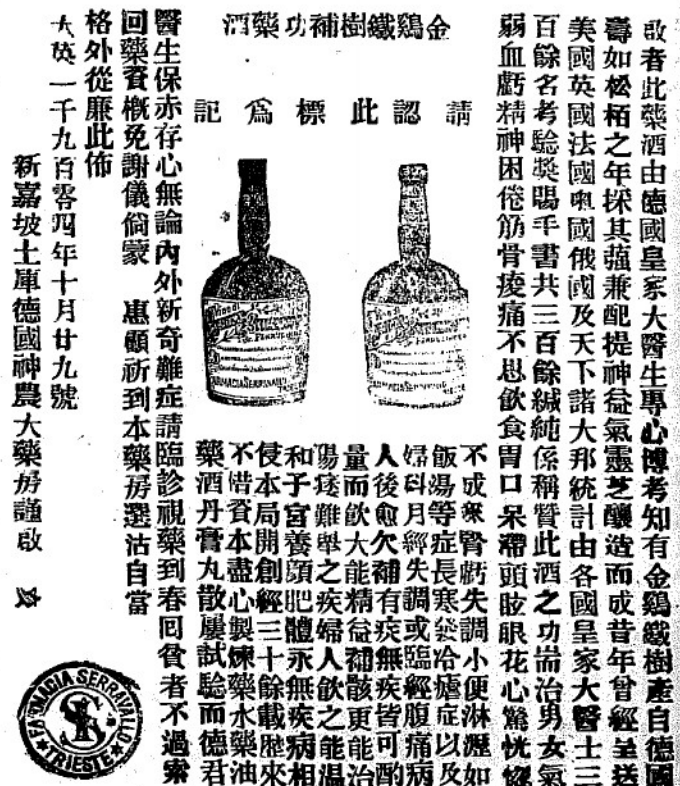 金鷄鐵樹補功藥酒
請認此標爲記
啟者此藥酒由德國皇家大醫生專心博考知有金鷄鐵樹產自德國
壽如松栢之年採其蕴兼配提神益氣靈芝釀造而成昔年曾經呈送
美國英國法國奧國俄國及天下諸大邦統計由各國皇家大醫士三
百餘名考驗奬賜手書共三百餘緘純係稱贊此酒之功耑治男女氣
弱血虧精神困倦筋骨痠痛不思飲食胃口呆滯頭眩眼花心驚恍惚
不成寐腎虧失調小便淋瀝如
飯湯等症長寒發冷瘧症以及
婦科月經失調或臨經腹痛病
人後愈欠補有疾無疾皆可酌
量而飲大能精益補骸更能治
陽痿難舉之疾婦人飲之能温
和子宮養顏肥體永無疾病相
侵本局開創經三十餘載歷來
不惜資本盡心製煉藥水藥油
藥酒丹膏丸散屢試驗而德君
醫生保赤存心無論內外新奇難症請臨診視藥到春囘貧者不過索
回藥資概免謝儀倘蒙 惠顧祈到本藥房選沽自當
格外從廉此佈
大英一千九百零四年十月廿九號
新嘉坡土庫德國神農大藥房謹啟
FARMACIA SERRAVALLO
TRIESTE